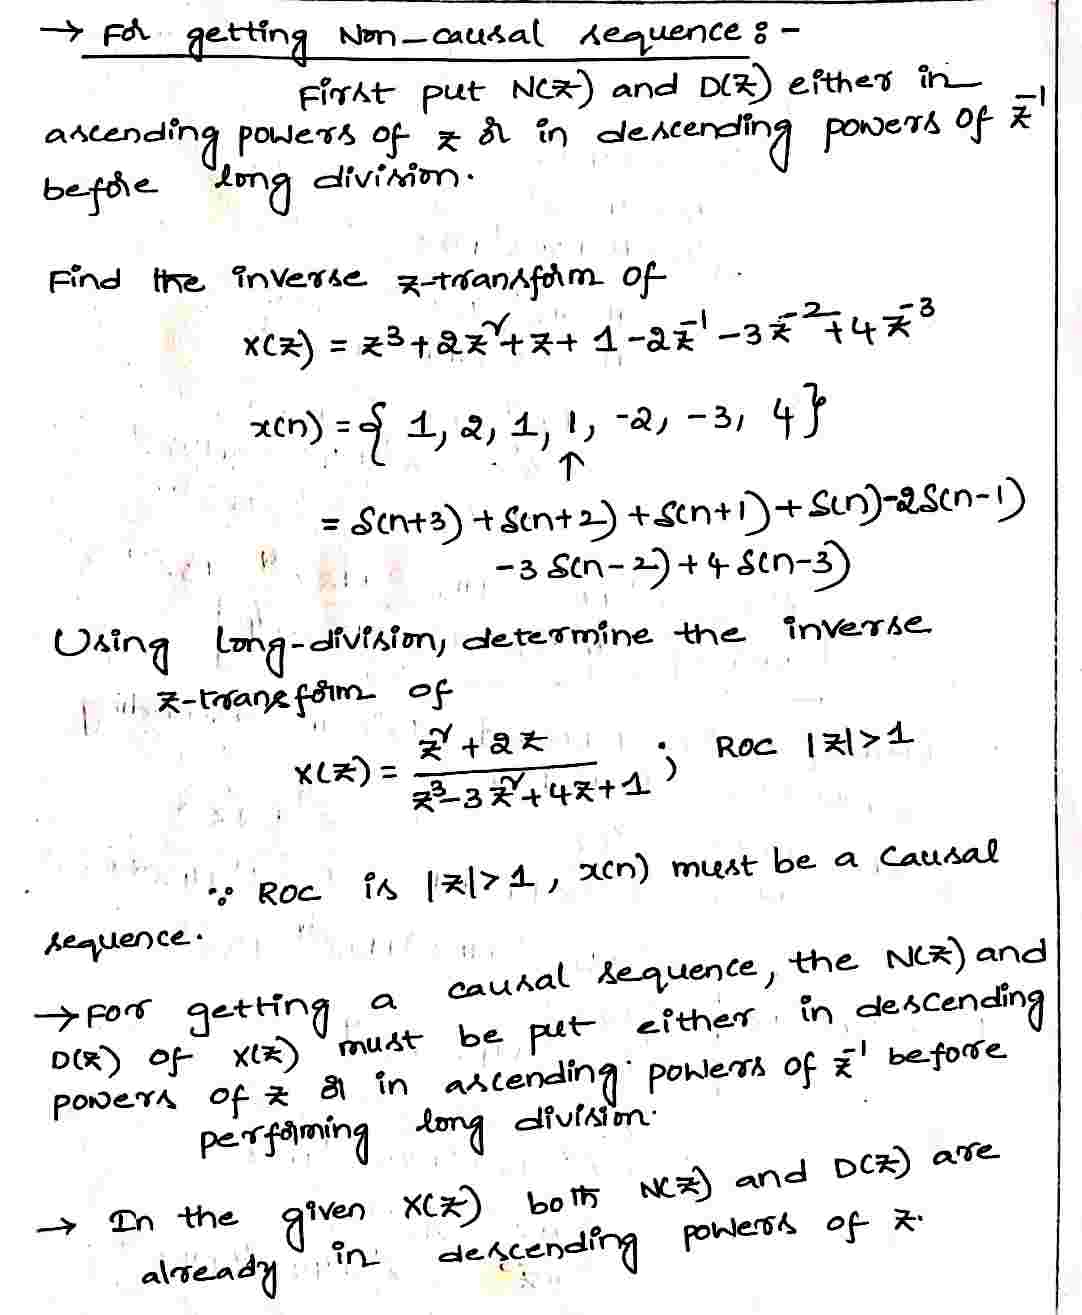 → For getting Non-causal sequence :-
First put N(z) and D(z) either in
ascending powers of z or in descending powers of z⁻¹
before long division.
Find the inverse z-transform of
X(z) = z³+2z²+z+1-2z⁻¹-3z⁻²+4z⁻³
x(n) = { 1, 2, 1, 1, -2, -3, 4}
↑
= δ(n+3)+δ(n+2)+δ(n+1)+δ(n)-2δ(n-1)
-3δ(n-2)+4δ(n-3)
Using long-division, determine the inverse
z-transform of
X(z) = (z²+2z)/(z³-3z²+4z+1) ; ROC |z|>1
∵ ROC is |z|>1, x(n) must be a causal
sequence.
→ For getting a causal sequence, the N(z) and
D(z) of X(z) must be put either in descending
powers of z or in ascending powers of z⁻¹ before
performing long division.
→ In the given X(z) both N(z) and D(z) are
already in descending powers of z.